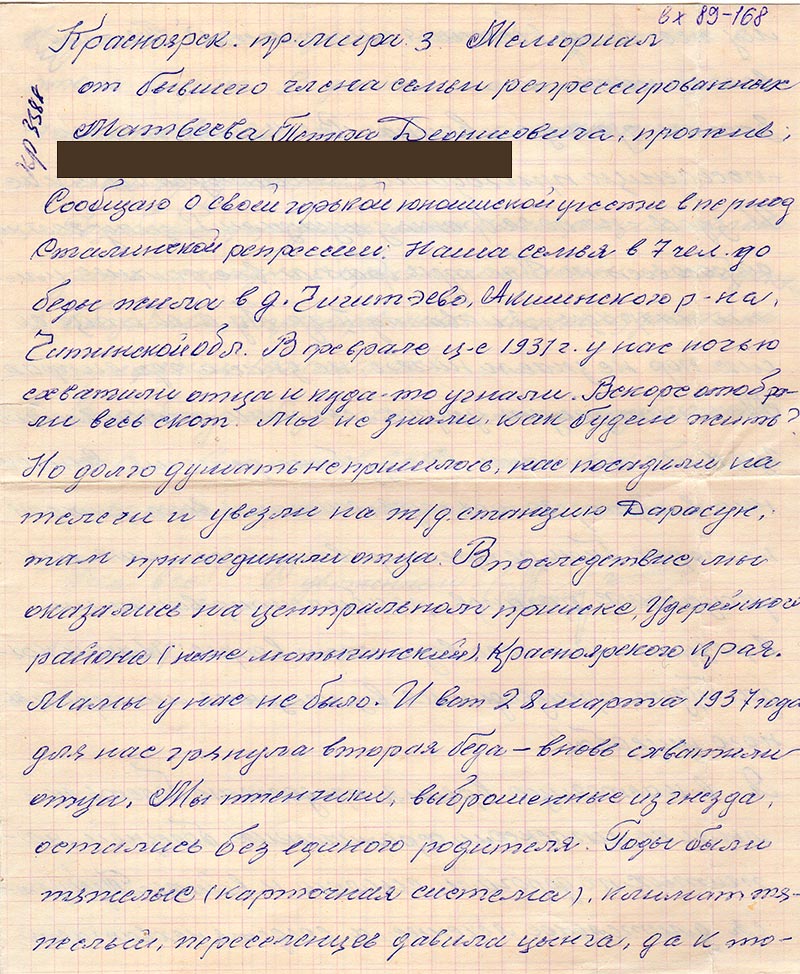 вх 89-168
Красноярск. пр. мира 3. Мемориал
кр 3588
от бывшего члена семьи репрессированных
Матвеева Петра Деонисовича, прожив;
Сообщаю о своей горькой юношиской участи в период
Сталинской репрессии. Наша семья в 7 чел. до
беды жила в д. Тигитэево, Акшинского р-на,
Читинской обл. В феврале м-це 1931 г. у нас ночью
схватили отца и куда-то угнали. Вскоре отобра-
ли весь скот. Мы не знали, как будем жить?
Но долго думать не пришлось, нас посадили на
телеги и увезли на ж/д станцию Дарасун,
там присоединили отца. В последствие мы
оказались на центральном прииске, Удерейского
района (ныне мотыгинский), Красноярского края.
Мамы у нас не было. И вот 28 марта 1937 года
для нас грянула вторая беда – вновь схватили
отца. Мы птенчики, выброшенные из гнезда,
остались без единого родителя. Годы были
тяжелые (карточная система), климат тя-
желый, переселенцев давила цынга, да к то-